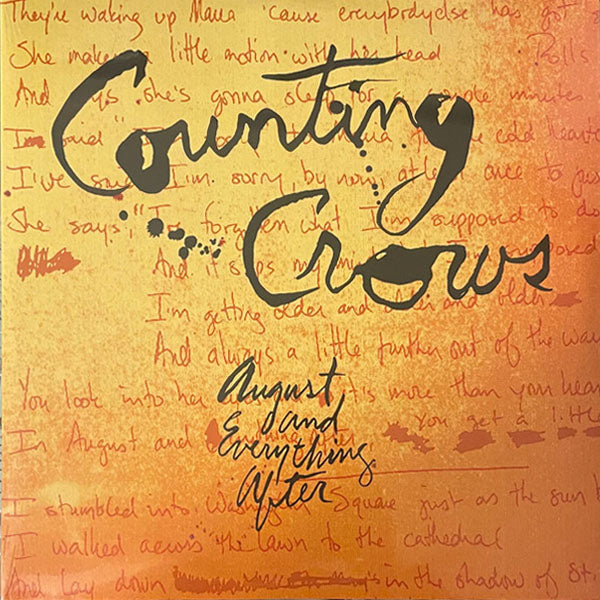 They're waking up Maria 'cause everybody else has got
She makes a little motion with her head Rolls
And says she's gonna sleep for a couple minutes
I said "I Maria the cold hearted
I've said I'm sorry by now, at least once to
She says, "I've forgotten what I'm supposed to do
And it slips my mind I'm supposed
I'm getting older and older and older
And always a little further out of the way
You look into her it's more than your hear
In August and Everything After You get a little
I stumbled into Washington Square just as the sun
I walked across the lawn to the cathedral
And lay down in the shadow of St.
Counting
Crows
August
and
Everything
After